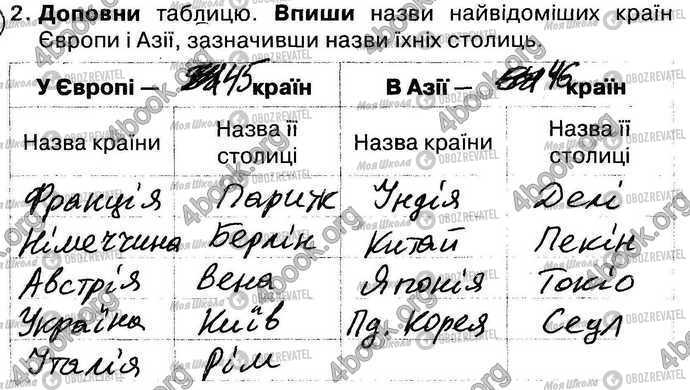 2. Доповни таблицю. Впиши назви найвідоміших країн
Європи і Азії, зазначивши назви їхніх столиць.
У Європі — 45 країн В Азії — 46 країн
Назва країни Назва її столиці Назва країни Назва її столиці
Франція Париж Індія Делі
Німеччина Берлін Китай Пекін
Австрія Вена Японія Токіо
Україна Київ Пд. Корея Сеул
Італія Рім
4book.org
Моя Школа OBOZREVATEL